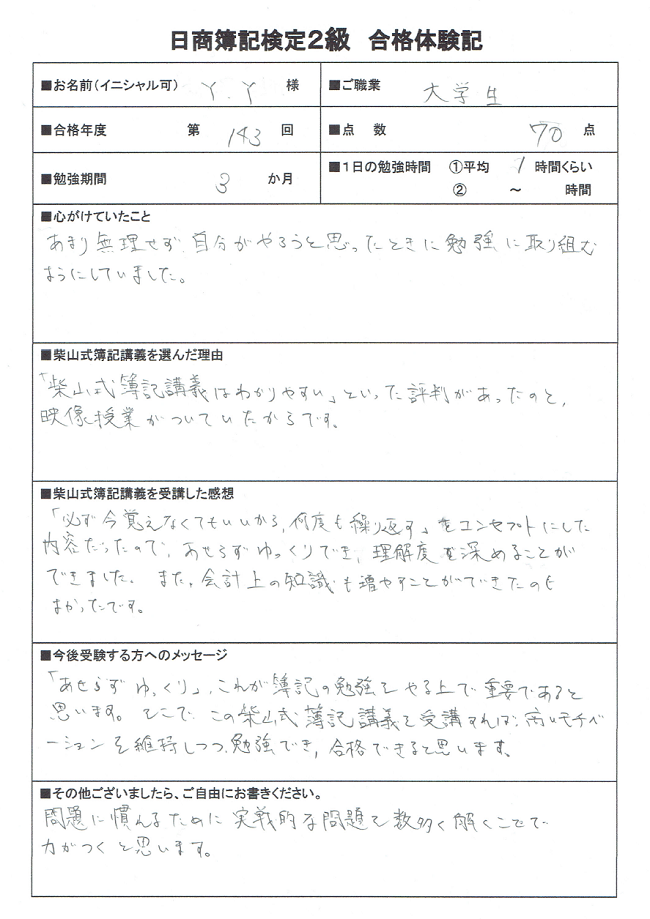 日商簿記検定2級 合格体験記
■お名前(イニシャル可) Y.Y 様 ■ご職業 大学生
■合格年度 第 143 回 ■点 数 70 点
■勉強期間 3 か月 ■1日の勉強時間 ①平均 1 時間くらい
② ～ 時間
■心がけていたこと
あまり無理せず、自分がやろうと思ったときに勉強に取り組む
ようにしていました。
■柴山式簿記講義を選んだ理由
「柴山式簿記講義はわかりやすい」といった評判があったのと、
映像授業がついていたからです。
■柴山式簿記講義を受講した感想
「必ず今覚えなくてもいいから、何度も繰り返す」をコンセプトにした
内容だったので、あせらずゆっくりでき、理解度を深めることが
できました。また、会計上の知識も増やすことができたのも
よかったです。
■今後受験する方へのメッセージ
「あせらずゆっくり」、これが簿記の勉強をやる上で重要であると
思います。そこで、この柴山式簿記講義を受講すれば、高いモチベ
ーションを維持しつつ、勉強でき、合格できると思います。
■その他ございましたら、ご自由にお書きください。
問題に慣れるために実戦的な問題を数多く解くことで
力がつくと思います。